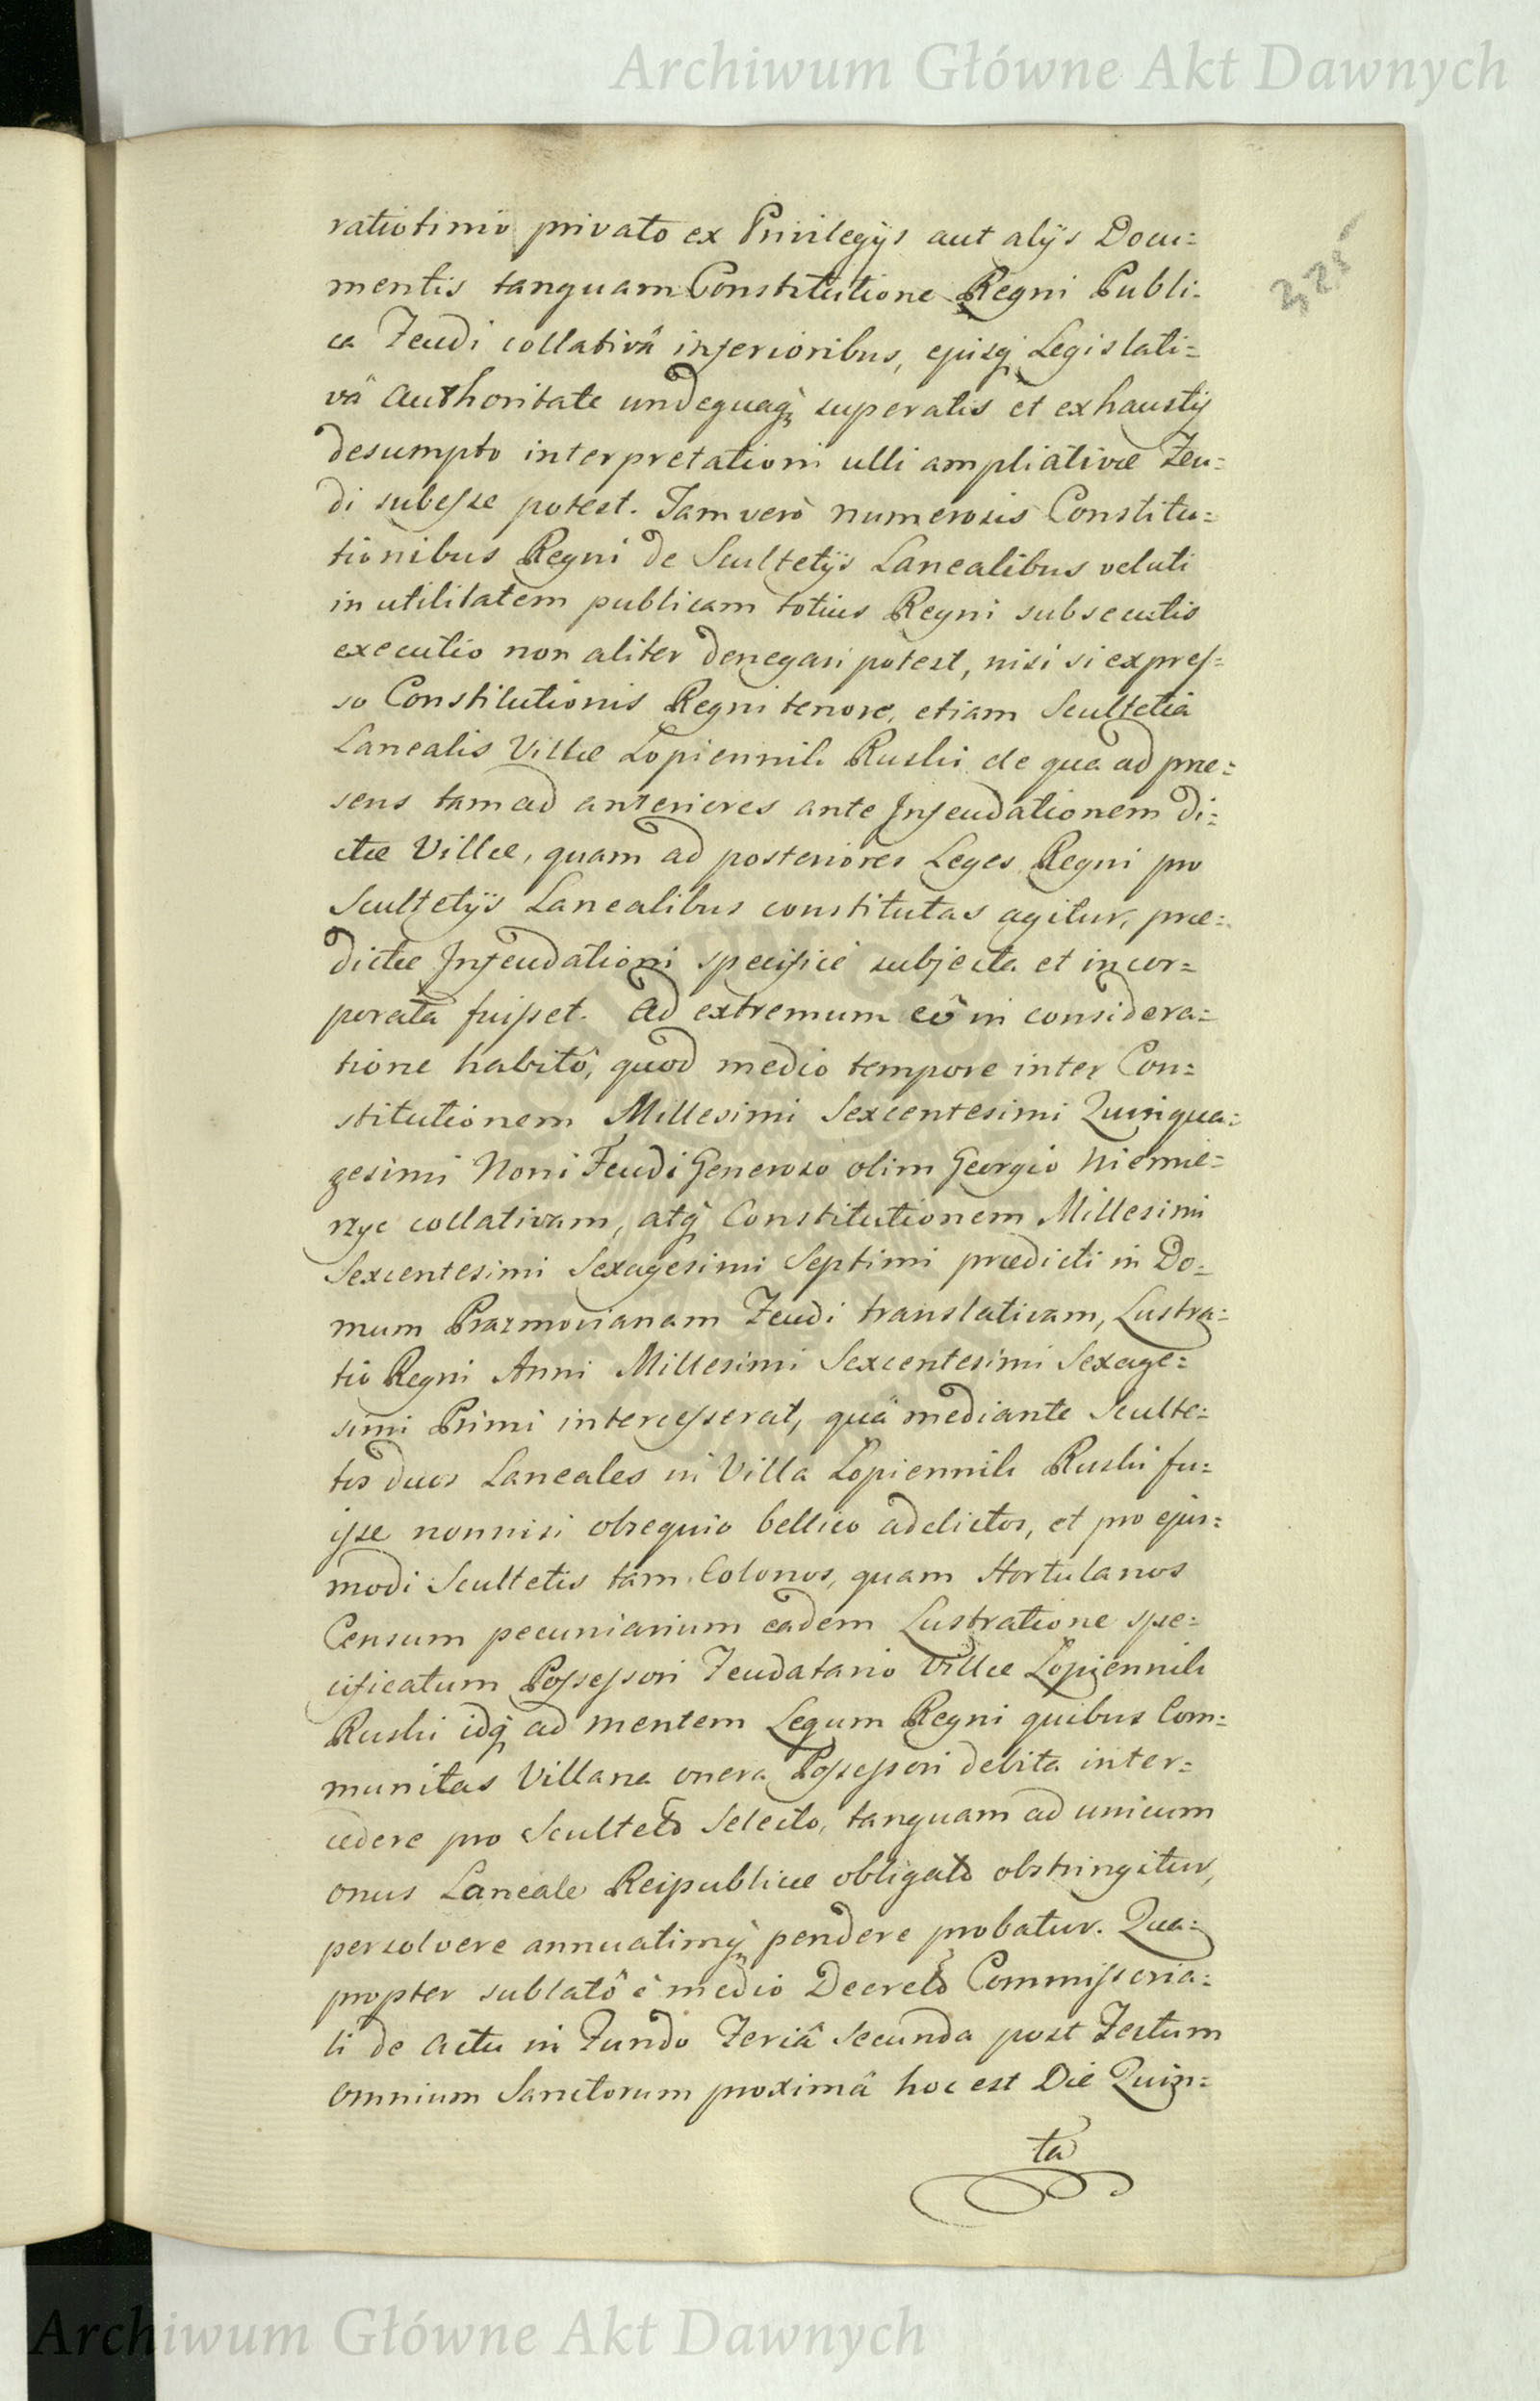 Archiwum Główne Akt Dawnych
325
ratiotinio privato ex Privilegijs aut alijs Docu=
mentis tanquam Constitutione Regni Publi=
ca Feudi collativâ inferioribus, ejusq́ Legislati=
vâ Authoritate undequaq́ superatis et exhaustis
desumpto interpretationi ulli ampliativæ Feu=
di subesse potest. Jam verò numerosis Constitu=
tionibus Regni de Scultetijs Lanealibus veluti
in utilitatem publicam totius Regni subsecutis
executio non aliter denegari potest, nisi si expres=
so Constitutionis Regni tenore, etiam Scultetia
Lanealis Villæ Lopiennik Ruski de qua ad præ=
sens tam ad anteriores ante Infeudationem di=
ctæ Villæ, quam ad posteriores Leges Regni pro
Scultetijs Lanealibus constitutas agitur, præ=
dictæ Infeudationi specificè subjecta et incor=
porata fuisset. Ad extremum eô in considera=
tione habitô, quod medio tempore inter Con=
stitutionem Millesimi Sexcentesimi Quinqua=
gesimi Noni Feudi Generoso olim Georgio Niemie=
rzyc collativam, atq́ Constitutionem Millesimi
Sexcentesimi Sexagesimi Septimi prædicti in Do=
mum Prazmovianam Feudi translativam, Lustra=
tio Regni Anni Millesimi Sexcentesimi Sexage=
simi Primi intercesserat, quâ mediante Sculte=
tos duos Laneales in Villa Lopiennik Ruski fu=
isse nonnisi obsequio bellico addictos, et pro ejus=
modi Scultetis tam Colonos, quam Hortulanos
Censum pecuniarium eadem Lustratione spe=
cificatum Possessori Feudatario Villæ Lopiennik
Ruski idq́ ad mentem Legum Regni quibus Com=
munitas Villana onera Possessori debita inter=
cedere pro Sculteto Selecto, tanquam ad unicum
onus Laneale Reipublicæ obligato obstringitur,
persolvere annuatimq́ pendere probatur. Qua=
propter sublatô è medio Decreto Commissoria=
li de Actu in Fundo Feriâ Secunda post Festum
Omnium Sanctorum proximâ hoc est Die Quin=
ta
Archiwum Główne Akt Dawnych